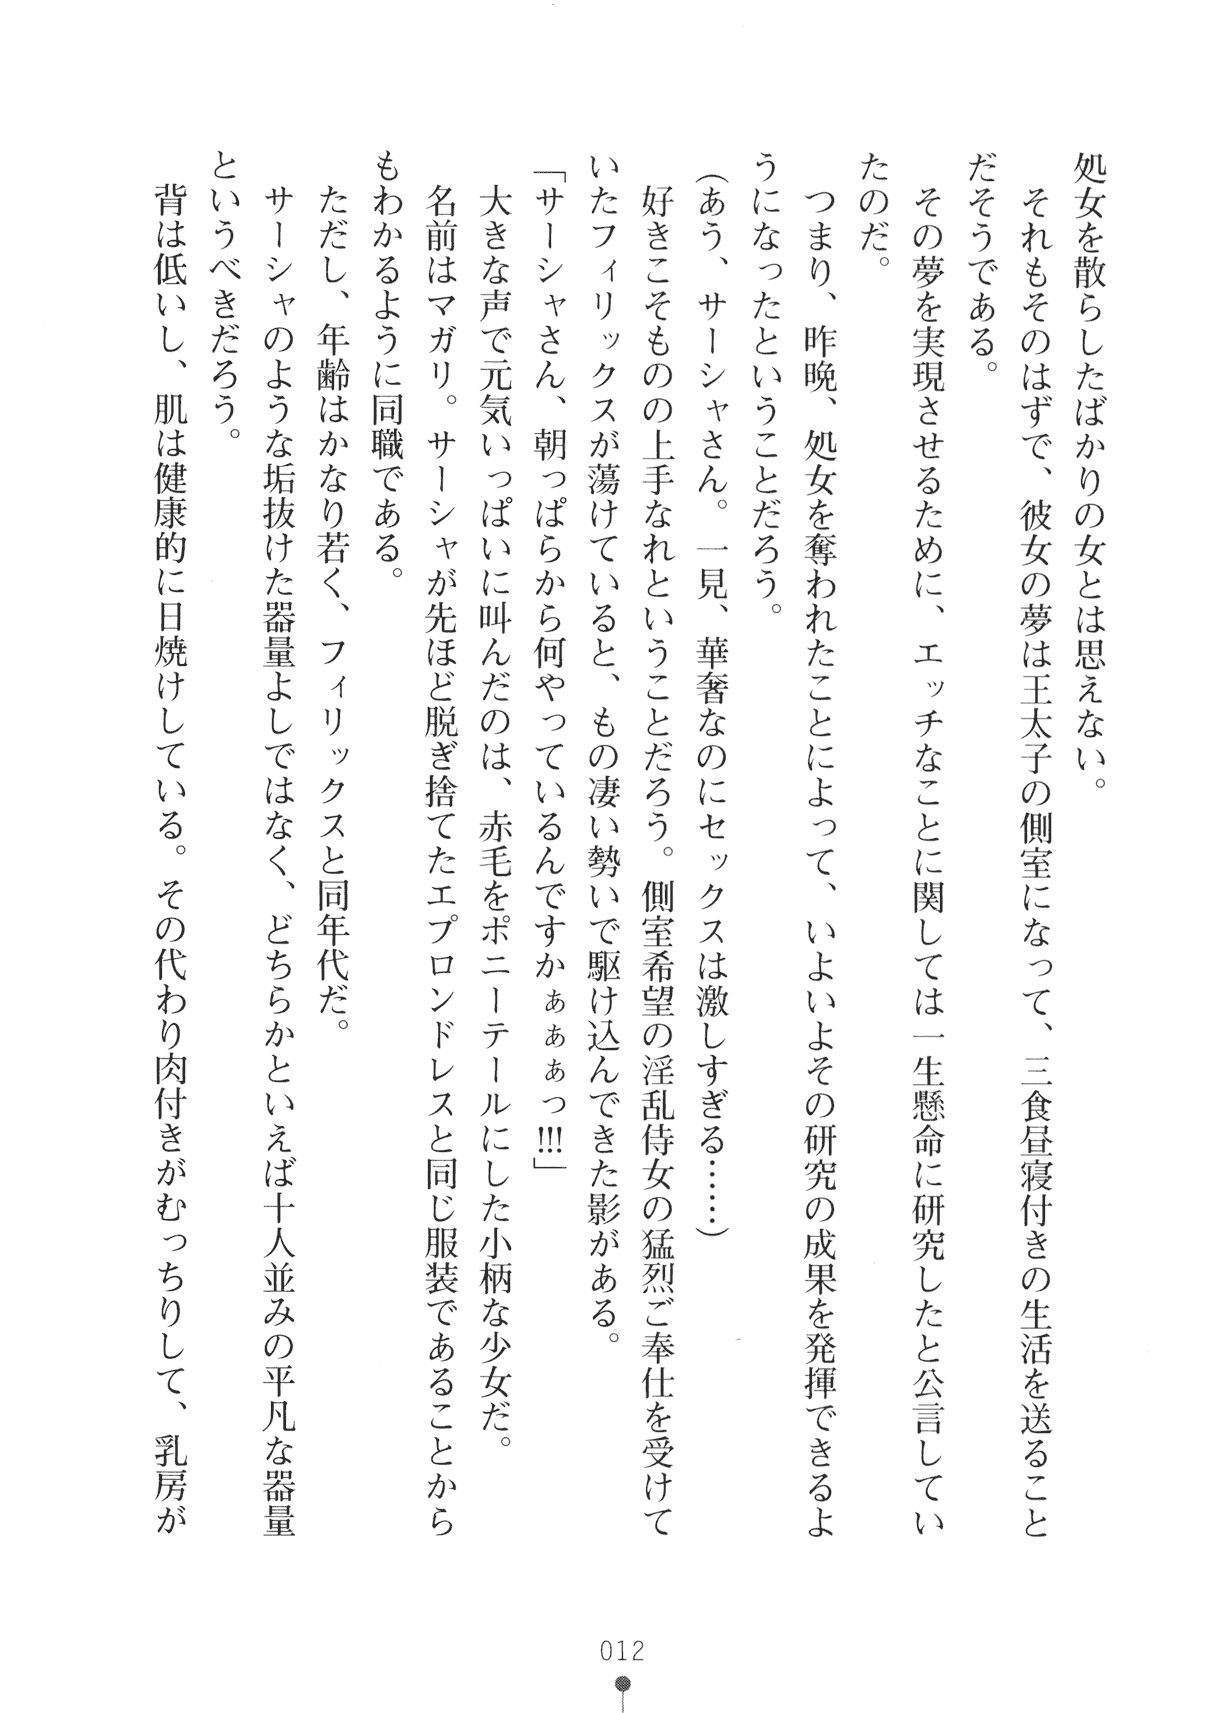 処女を散らしたばかりの女とは思えない。
それもそのはずで、彼女の夢は王太子の側室になって、三食昼寝付きの生活を送ること
だそうである。
その夢を実現させるために、エッチなことに関しては一生懸命に研究したと公言してい
たのだ。
つまり、昨晩、処女を奪われたことによって、いよいよその研究の成果を発揮できるよ
うになったということだろう。
（あう、サーシャさん。一見、華奢なのにセックスは激しすぎる……）
好きこそものの上手なれということだろう。側室希望の淫乱侍女の猛烈ご奉仕を受けて
いたフィリックスが蕩けていると、もの凄い勢いで駆け込んできた影がある。
「サーシャさん、朝っぱらから何やっているんですかぁぁぁっ!!!」
大きな声で元気いっぱいに叫んだのは、赤毛をポニーテールにした小柄な少女だ。
名前はマガリ。サーシャが先ほど脱ぎ捨てたエプロンドレスと同じ服装であることから
もわかるように同職である。
ただし、年齢はかなり若く、フィリックスと同年代だ。
サーシャのような垢抜けた器量よしではなく、どちらかといえば十人並みの平凡な器量
というべきだろう。
背は低いし、肌は健康的に日焼けしている。その代わり肉付きがむっちりして、乳房が
012